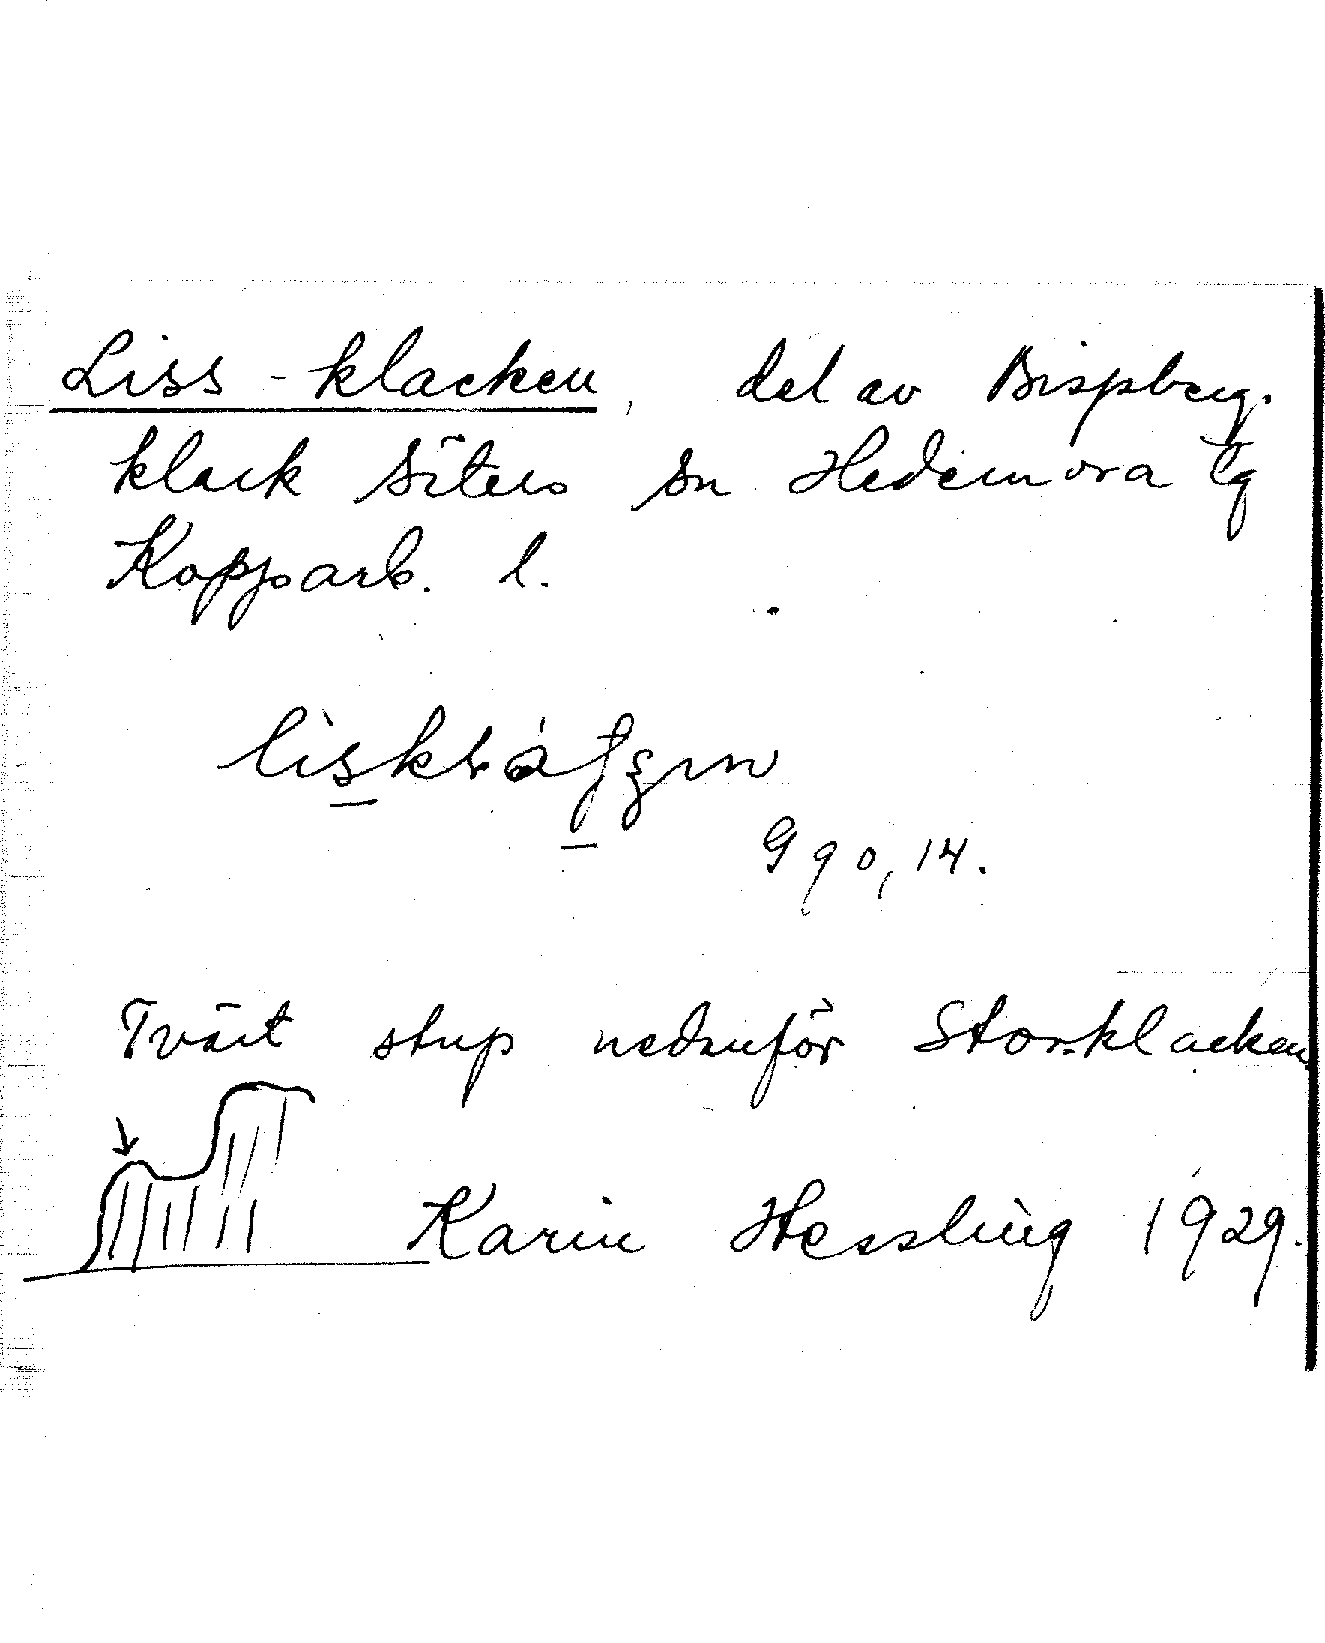 Liss-klacken, del av Bispberg.
klack Säters sn Hedemora tg
Kopparb. l.
990,14.
Tvärt stup nedanför Storklacken
Karin Hessling 1929.